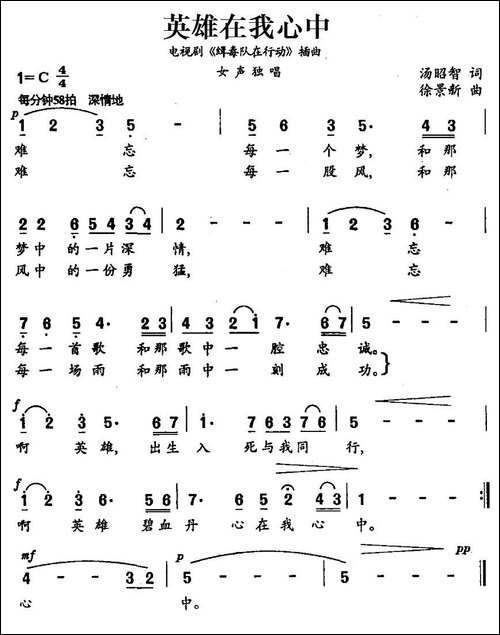 英雄在我心中
电视剧《缉毒队在行动》插曲
女声独唱
1=C 4/4
汤昭智 词
徐景新 曲
每分钟58拍 深情地
p
1 2 3 5 - | 5 6 3 5· 4 3 |
难 忘 每 一 个 梦, 和 那
难 忘 每 一 股 风, 和 那
2 2 6 5 4 3 4 | 2 - - - | 1 2 3 6 - |
梦 中 的 一 片 深 情, 难 忘
风 中 的 一 份 勇 猛, 难 忘
7 6 5 4· 2 3 | 4 3 2 1 7· 6 7 | 5 - - - |
每 一 首 歌 和 那 歌 中 一 腔 忠 诚。
每 一 场 雨 和 那 雨 中 一 刻 成 功。
f
1 2 3 5· 6 7 | 1 · 7 6 3 7 6 | 5 - - - |
啊 英 雄, 出 生 入 死 与 我 同 行,
f
1 2 3 6· 5 6 | 6 5 2 4 3 | 1 - - - :||
啊 英 雄 碧 血 丹 心 在 我 心 中。
mf p pp
4 - - 3 2 | 5 - - - | 5 - - - ||
心 中。